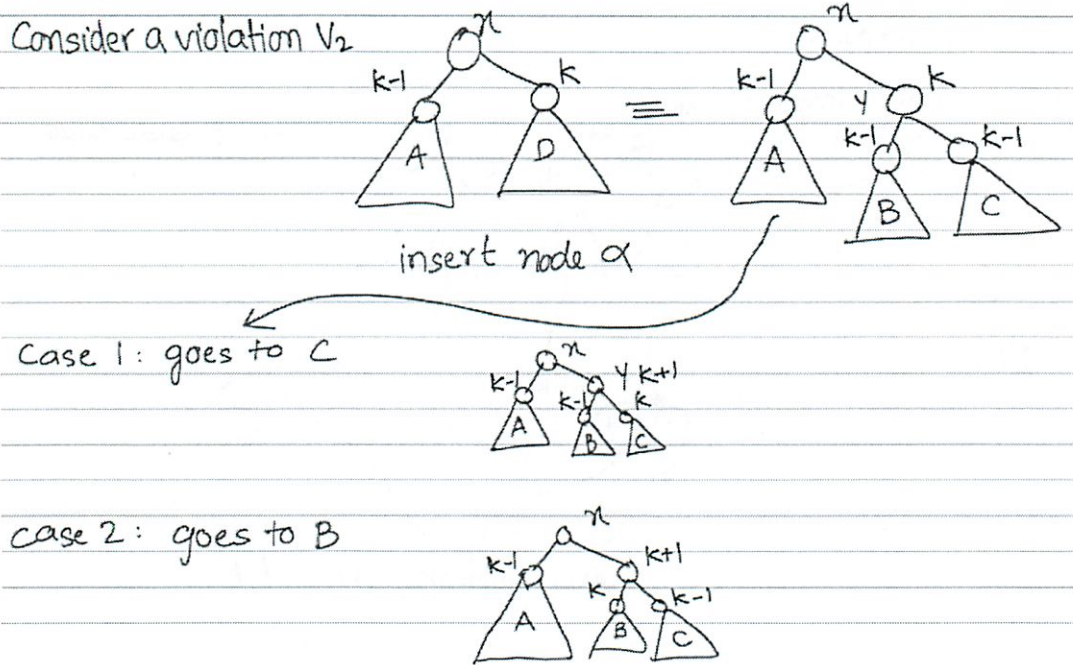 Consider a violation V₂
x x
k-1 k k-1 y k
≡
A D A k-1 k-1
B C
insert node α
Case 1: goes to C
x
k-1 y k+1
k-1 k
A B C
case 2: goes to B
x
k-1 k+1
k k-1
A B C